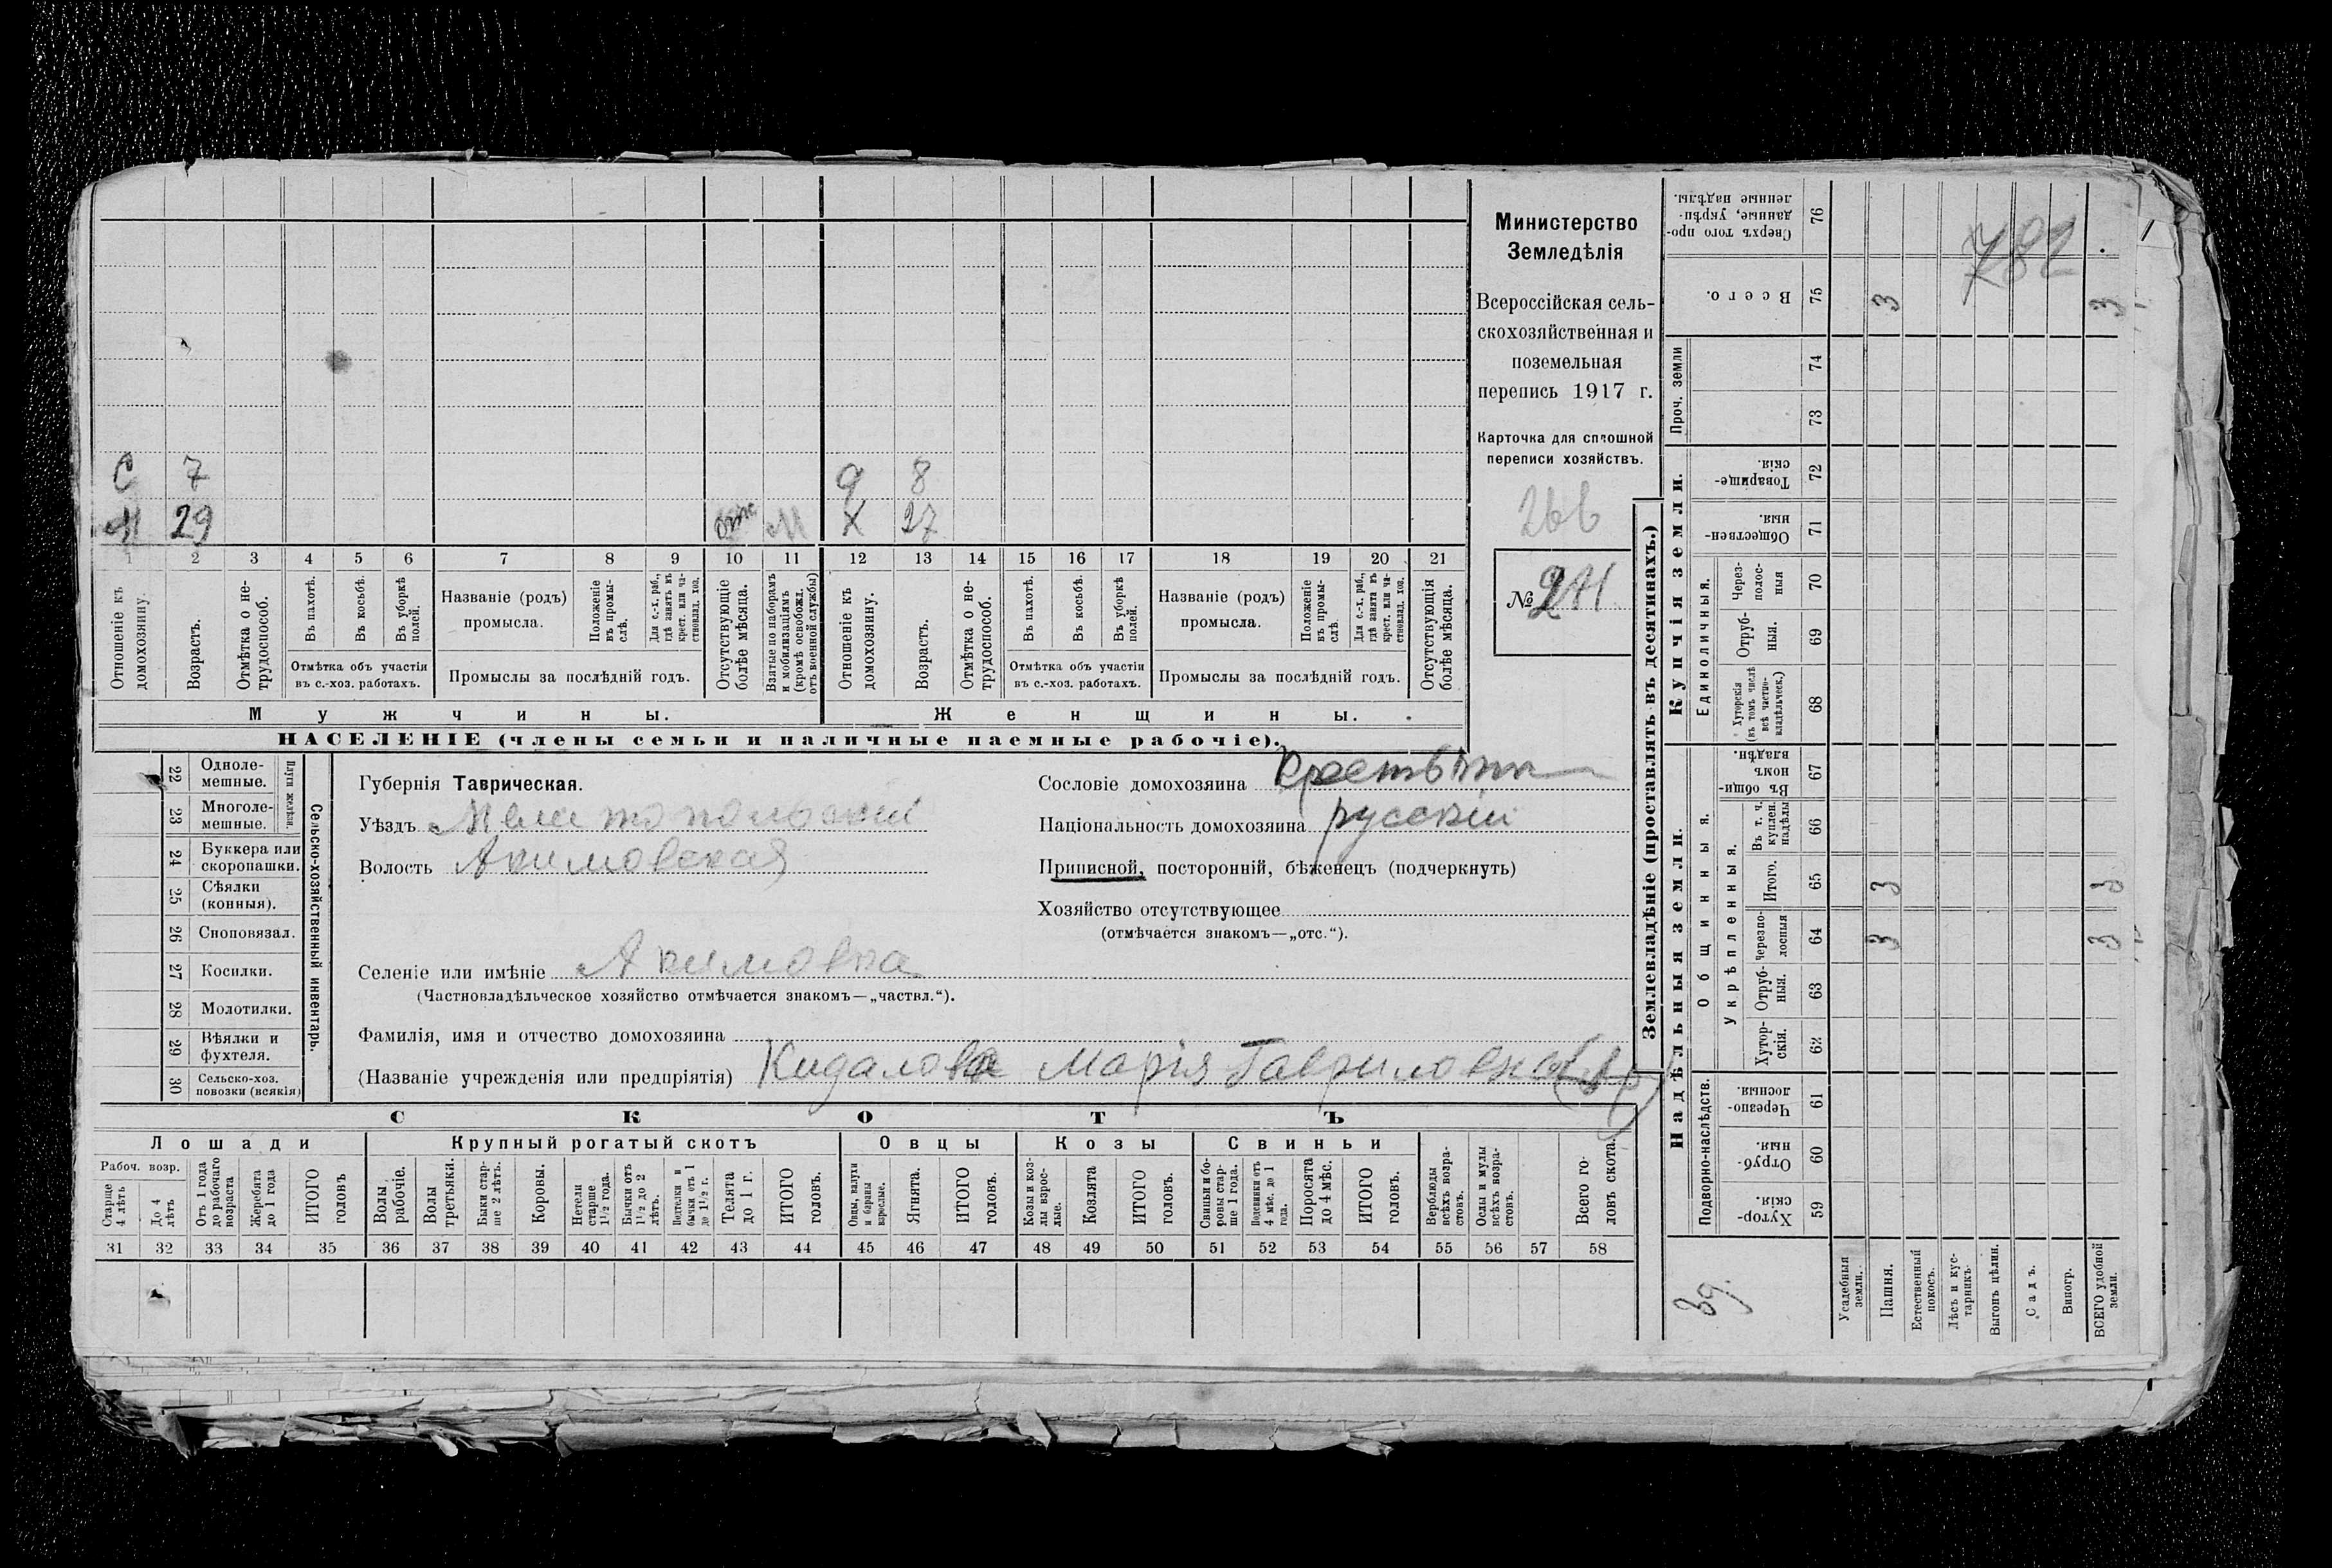 С 7 д 8
М 29 отс М Х 27
1 2 3 4 5 6 7 8 9 10 11 12 13 14 15 16 17 18 19 20 21
Отношеніе къ домохозяину.
Возрастъ.
Отмѣтка о не-трудоспособ.
Въ пахотѣ.
Въ косьбѣ.
Въ уборкѣ полей.
Отмѣтка объ участіи въ с.-хоз. работахъ.
Названіе (родъ) промысла.
Положеніе въ промы-слѣ.
Для с.-х. раб., гдѣ занятъ въ крест. или ча-стновлад. хоз.
Промыслы за послѣдній годъ.
Отсутствующіе болѣе мѣсяца.
Взятые по наборамъ и мобилизаціямъ (кромѣ освобожд. отъ военной службы)
Отношеніе къ домохозяину.
Возрастъ.
Отмѣтка о не-трудоспособ.
Въ пахотѣ.
Въ косьбѣ.
Въ уборкѣ полей.
Отмѣтка объ участіи въ с.-хоз. работахъ.
Названіе (родъ) промысла.
Положеніе въ промы-слѣ.
Для с.-х. раб., гдѣ занята въ крест. или ча-стновлад. хоз.
Промыслы за послѣдній годъ.
Отсутствующія болѣе мѣсяца.
Мужчины. Женщины.
НАСЕЛЕНІЕ (члены семьи и наличные наемные рабочіе).
Министерство
Земледѣлія
Всероссійская сель-
скохозяйственная и
поземельная
перепись 1917 г.
Карточка для сплошной
переписи хозяйствъ.
№
22 Одноле-мешные.
23 Многоле-мешные.
Плуги желѣзн.
24 Буккера или скоропашки.
25 Сѣялки (конныя).
26 Сноповязал.
27 Косилки.
28 Молотилки.
29 Вѣялки и фухтеля.
30 Сельско-хоз. повозки (всякія)
Сельско-хозяйственный инвентарь.
Губернія Таврическая.
Уѣздъ Мелитопольскій
Волость Акимовская
Селеніе или имѣніе Акимовка
(Частновладѣльческое хозяйство отмѣчается знакомъ—„частвл.“).
Сословіе домохозяина
Національность домохозяина русскій
Приписной, посторонній, бѣженецъ (подчеркнуть)
Хозяйство отсутствующее
(отмѣчается знакомъ—„отс.“).
Фамилія, имя и отчество домохозяина
(Названіе учрежденія или предпріятія) Кидалова Марія Гавриловна
СКОТЪ
Лошади Крупный рогатый скотъ Овцы Козы Свиньи
Рабоч. возр.
Старще 4 лѣтъ
До 4 лѣтъ
Отъ 1 года до рабочаго возраста
Жеребята до 1 года
ИТОГО головъ
Волы рабочіе.
Волы третьяки.
Быки стар-ше 2 лѣтъ.
Коровы.
Нетели старше 1½ года.
Бычки отъ 1½ до 2 лѣтъ.
Подтелки и бычки отъ 1 до 1½ г.
Телята до 1 г.
ИТОГО головъ.
Овцы, валухи и бараны взрослые.
Ягнята.
ИТОГО головъ.
Козы и коз-лы взрос-лые.
Козлята
ИТОГО головъ.
Свиньи и бо-ровы стар-ше 1 года.
Подсвинки отъ 4 мѣс. до 1 года.
Поросята до 4 мѣс.
ИТОГО головъ.
Верблюды всѣхъ возра-стовъ.
Ослы и мулы всѣхъ возра-стовъ.
Всего го-ловъ скота.
31 32 33 34 35 36 37 38 39 40 41 42 43 44 45 46 47 48 49 50 51 52 53 54 55 56 57 58
Землевладѣніе (проставлять въ десятинахъ.)
782
Сверхъ того про-данные, укрѣп-ленные надѣлы. 76
Всего. 75 3 3
Проч. земли 74
73
Купчія земли.
Товарище-скія. 72
Обществен-ныя. 71
Единоличныя.
Через-полос-ныя 70
Отруб-ныя. 69
Хуторскія (въ томъ числѣ всѣ частно-владѣльческ.) 68
Надѣльныя земли.
Общинныя.
Въ общин-номъ владѣн. 67
Укрѣпленныя.
Въ т. ч. куплен. надѣлы 66
Итого. 65 3 3
Черезпо-лосныя 64 3 3
Отруб-ныя. 63
Хутор-скія. 62
Подворно-наслѣдств.
Черезпо-лосныя. 61
Отруб-ныя. 60
Хутор-скія. 59
Усадебныя земли.
Пашня.
Естественный покосъ.
Лѣсъ и кус-тарникъ
Выгонъ цѣлин.
Садъ.
Виногр.
ВСЕГО удобной земли.